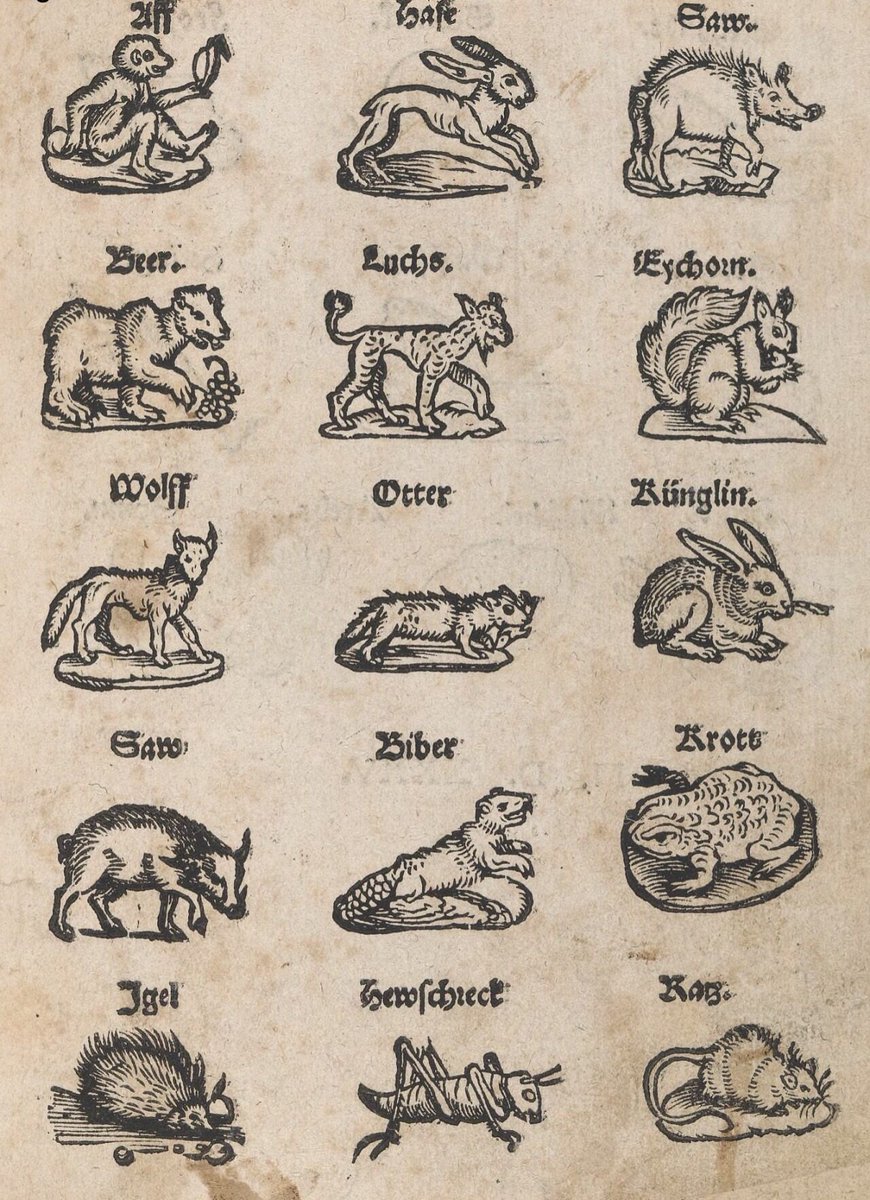 Aff Hase Saw.
Beer. Luchs. Eychorn.
Wolff Otter Künglin.
Saw Biber Krott
Igel Hewschreck Ratz.